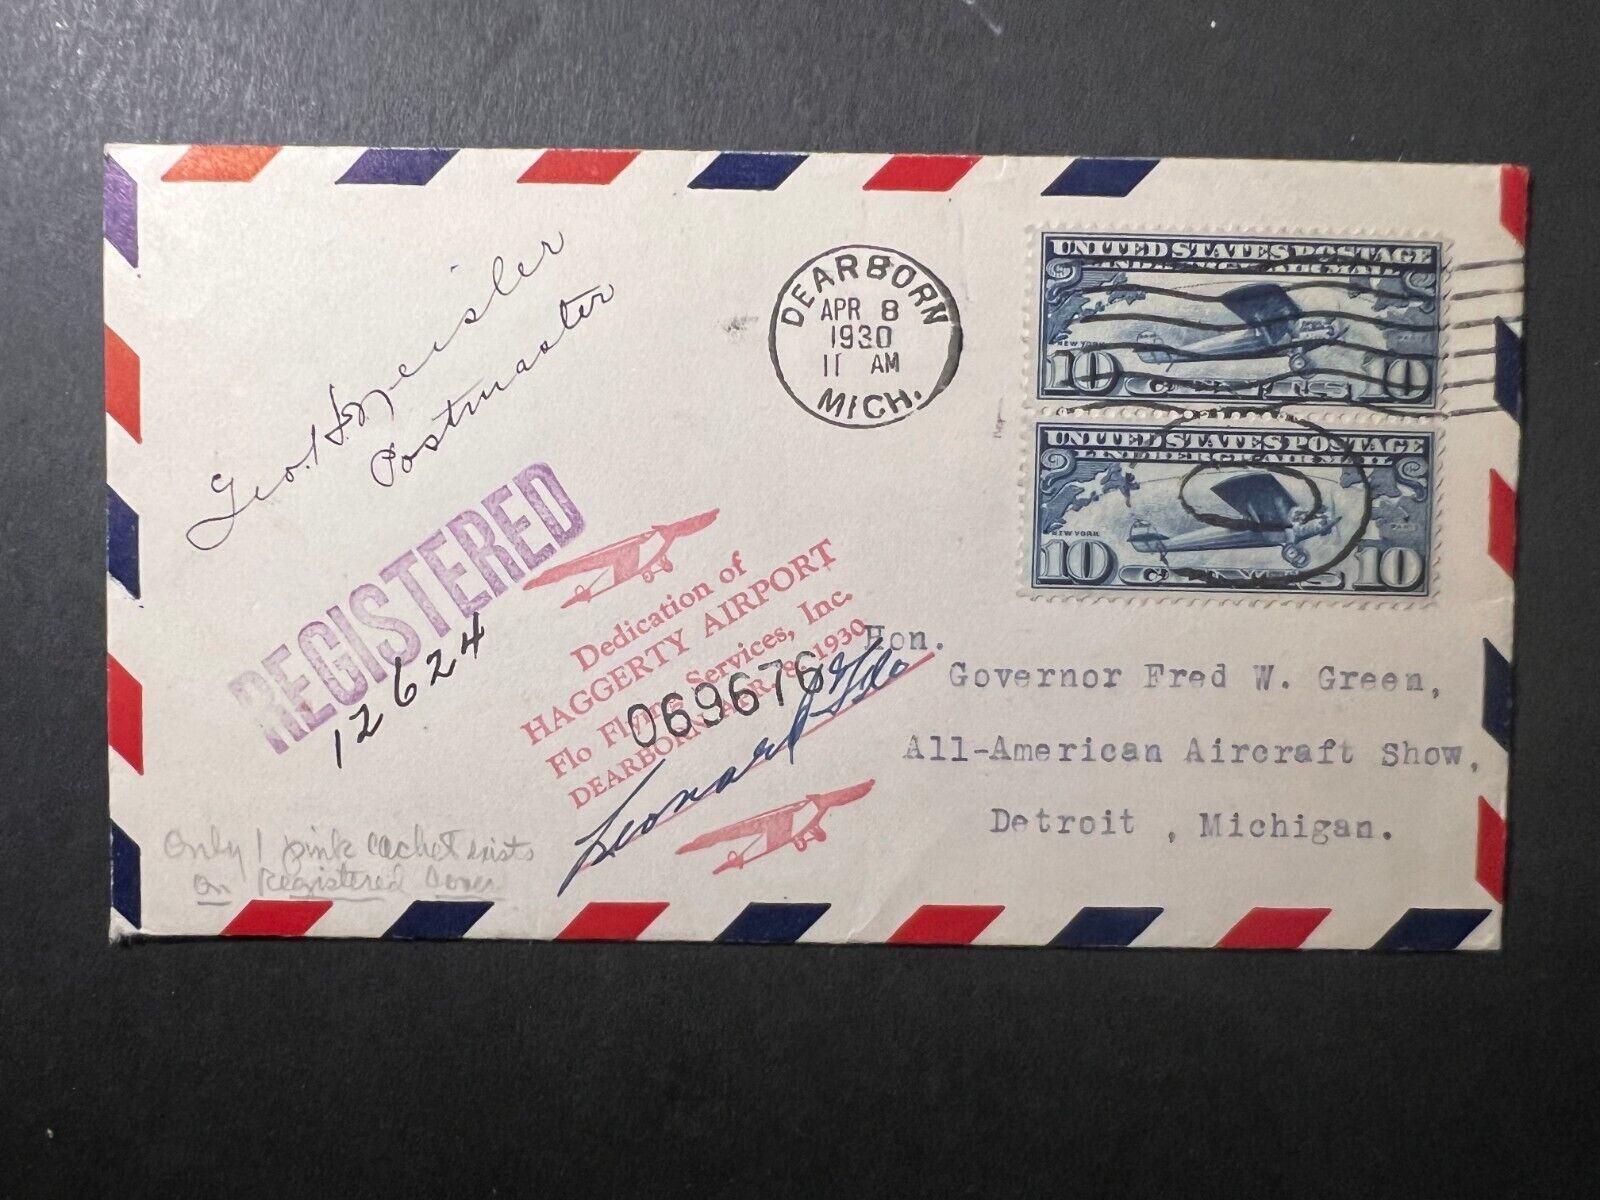 Geo. H. Neisler
Postmaster
REGISTERED
12624
DEARBORN
APR 8
1930
11 AM
MICH.
UNITED STATES POSTAGE
LINDBERGH AIR MAIL
NEW YORK
PARIS
10 CENTS 10
UNITED STATES POSTAGE
LINDBERGH AIR MAIL
NEW YORK
PARIS
10 CENTS 10
Dedication of
HAGGERTY AIRPORT
Flo Flying Services, Inc.
DEARBORN APR. 8, 1930
069676
Leonard Flo
Hon.
Governor Fred W. Green,
All-American Aircraft Show,
Detroit, Michigan.
Only 1 pink cachet exists
on Registered Cover